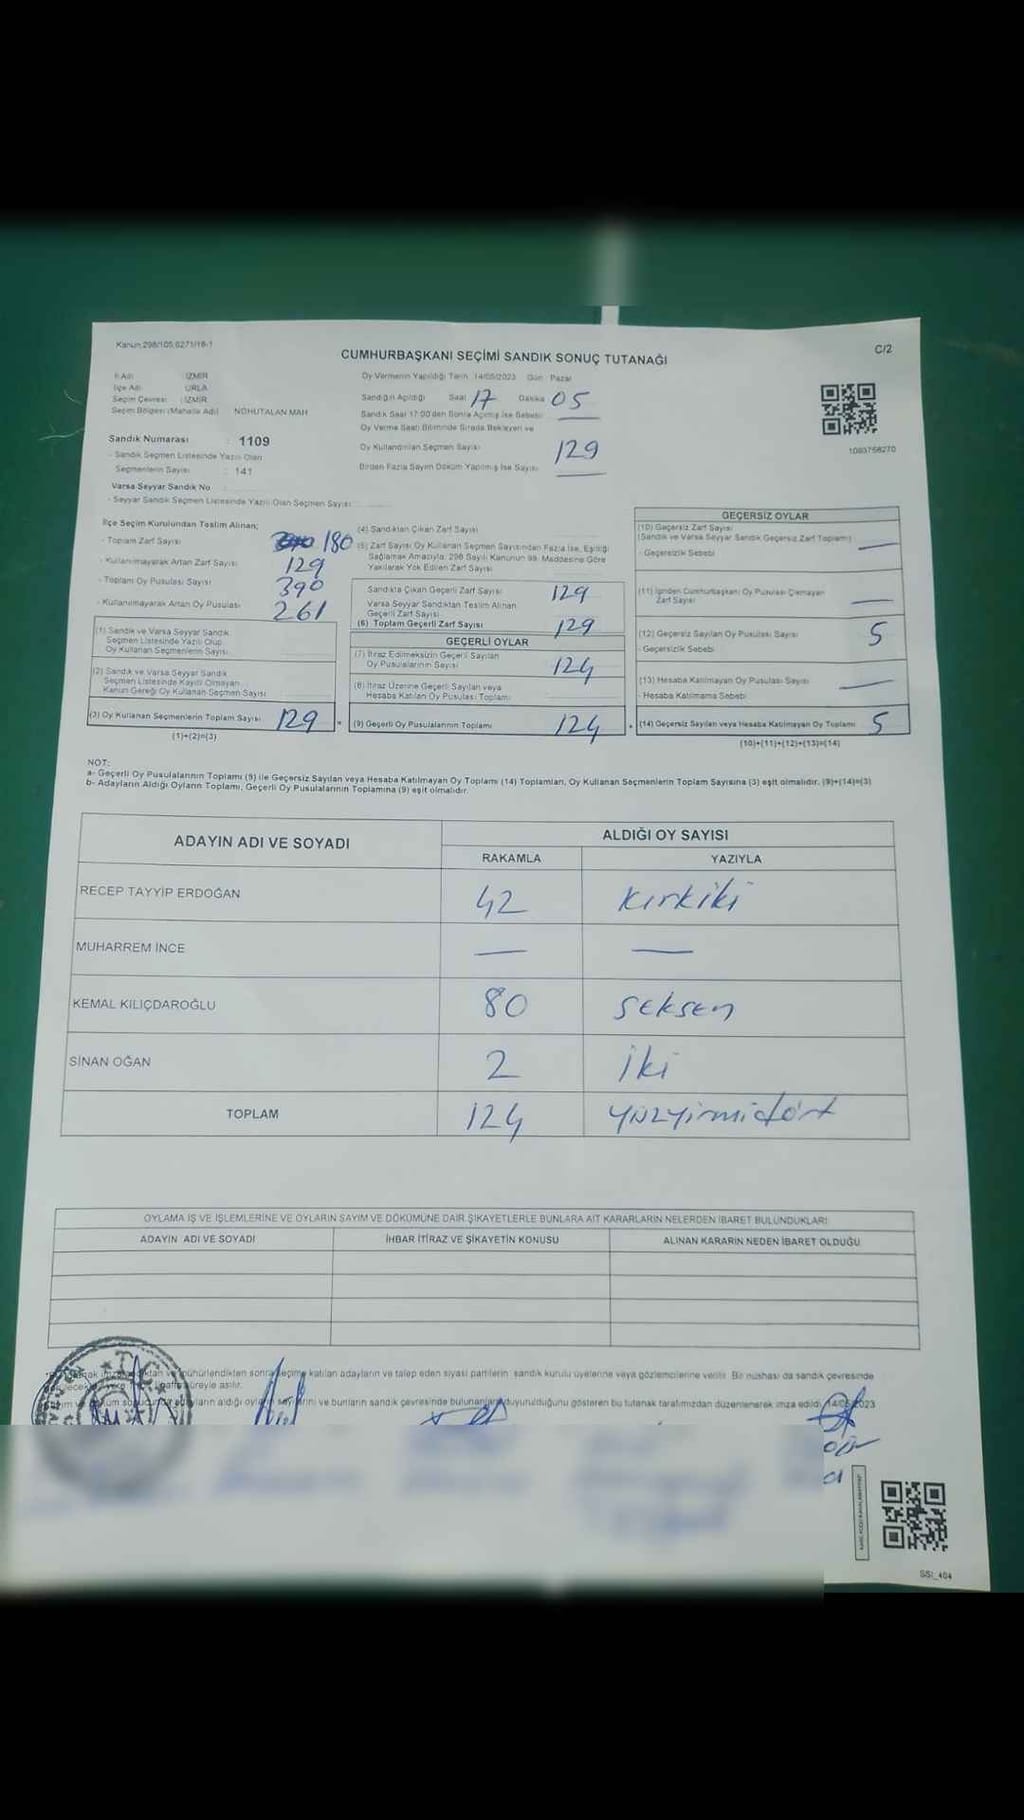 Kanun 298/105,6271/16-1
CUMHURBAŞKANI SEÇİMİ SANDIK SONUÇ TUTANAĞI
C/2
İl Adı İZMİR
İlçe Adı URLA
Seçim Çevresi : İZMİR
Seçim Bölgesi (Mahalle Adı) NOHUTALAN MAH
Sandık Numarası : 1109
- Sandık Seçmen Listesinde Yazılı Olan
Seçmenlerin Sayısı : 141
Varsa Seyyar Sandık No
- Seyyar Sandık Seçmen Listesinde Yazılı Olan Seçmen Sayısı
Oy Vermenin Yapıldığı Tarih 14/05/2023 Gün Pazar
Sandığın Açıldığı Saat 17 Dakika 05
Sandık Saat 17:00'den Sonra Açılmış İse Sebebi
Oy Verme Saati Bitiminde Sırada Bekleyen ve
Oy Kullandırılan Seçmen Sayısı 129
Birden Fazla Sayım Döküm Yapılmış İse Sayısı
1093758270
İlçe Seçim Kurulundan Teslim Alınan;
- Toplam Zarf Sayısı 180
- Kullanılmayarak Artan Zarf Sayısı 129
- Toplam Oy Pusulası Sayısı 390
- Kullanılmayarak Artan Oy Pusulası 261
(1) Sandık ve Varsa Seyyar Sandık
Seçmen Listesinde Yazılı Olup
Oy Kullanan Seçmenlerin Sayısı
(2) Sandık ve Varsa Seyyar Sandık
Seçmen Listesinde Kayıtlı Olmayan
Kanun Gereği Oy Kullanan Seçmen Sayısı
(3) Oy Kullanan Seçmenlerin Toplam Sayısı 129
(1)+(2)=(3)
(4) Sandıktan Çıkan Zarf Sayısı
(5) Zarf Sayısı Oy Kullanan Seçmen Sayısından Fazla İse, Eşitliği
Sağlamak Amacıyla, 298 Sayılı Kanunun 98. Maddesine Göre
Yakılarak Yok Edilen Zarf Sayısı
Sandıkta Çıkan Geçerli Zarf Sayısı 129
Varsa Seyyar Sandıktan Teslim Alınan
Geçerli Zarf Sayısı
(6) Toplam Geçerli Zarf Sayısı 129
GEÇERLİ OYLAR
(7) İtiraz Edilmeksizin Geçerli Sayılan
Oy Pusulalarının Sayısı 124
(8) İtiraz Üzerine Geçerli Sayılan veya
Hesaba Katılan Oy Pusulası Toplamı
(9) Geçerli Oy Pusulalarının Toplamı 124
GEÇERSİZ OYLAR
(10) Geçersiz Zarf Sayısı
(Sandık ve Varsa Seyyar Sandık Geçersiz Zarf Toplamı) —
- Geçersizlik Sebebi
(11) İçinden Cumhurbaşkanı Oy Pusulası Çıkmayan
Zarf Sayısı —
(12) Geçersiz Sayılan Oy Pusulası Sayısı 5
- Geçersizlik Sebebi
(13) Hesaba Katılmayan Oy Pusulası Sayısı —
- Hesaba Katılmama Sebebi
(14) Geçersiz Sayılan veya Hesaba Katılmayan Oy Toplamı 5
(10)+(11)+(12)+(13)=(14)
NOT:
a- Geçerli Oy Pusulalarının Toplamı (9) ile Geçersiz Sayılan veya Hesaba Katılmayan Oy Toplamı (14) Toplamları, Oy Kullanan Seçmenlerin Toplam Sayısına (3) eşit olmalıdır. (9)+(14)=(3)
b- Adayların Aldığı Oyların Toplamı, Geçerli Oy Pusulalarının Toplamına (9) eşit olmalıdır.
ADAYIN ADI VE SOYADI
ALDIĞI OY SAYISI
RAKAMLA YAZIYLA
RECEP TAYYİP ERDOĞAN 42 kırkiki
MUHARREM İNCE — —
KEMAL KILIÇDAROĞLU 80 seksen
SİNAN OĞAN 2 iki
TOPLAM 124 yüzyirmidört
OYLAMA İŞ VE İŞLEMLERİNE VE OYLARIN SAYIM VE DÖKÜMÜNE DAİR ŞİKAYETLERLE BUNLARA AİT KARARLARIN NELERDEN İBARET BULUNDUKLARI
ADAYIN ADI VE SOYADI İHBAR İTİRAZ VE ŞİKAYETİN KONUSU ALINAN KARARIN NEDEN İBARET OLDUĞU
mühürlendikten sonra seçime katılan adayların ve talep eden siyasi partilerin sandık kurulu üyelerine veya gözlemcilerine verilir. Bir nüshası da sandık çevresinde
süreyle asılır.
oyların sayılarını ve bunların sandık çevresinde bulunanlara duyurulduğunu gösteren bu tutanak tarafımızdan düzenlenerek imza edildi. 14/05/2023
T.C.
SSI_404